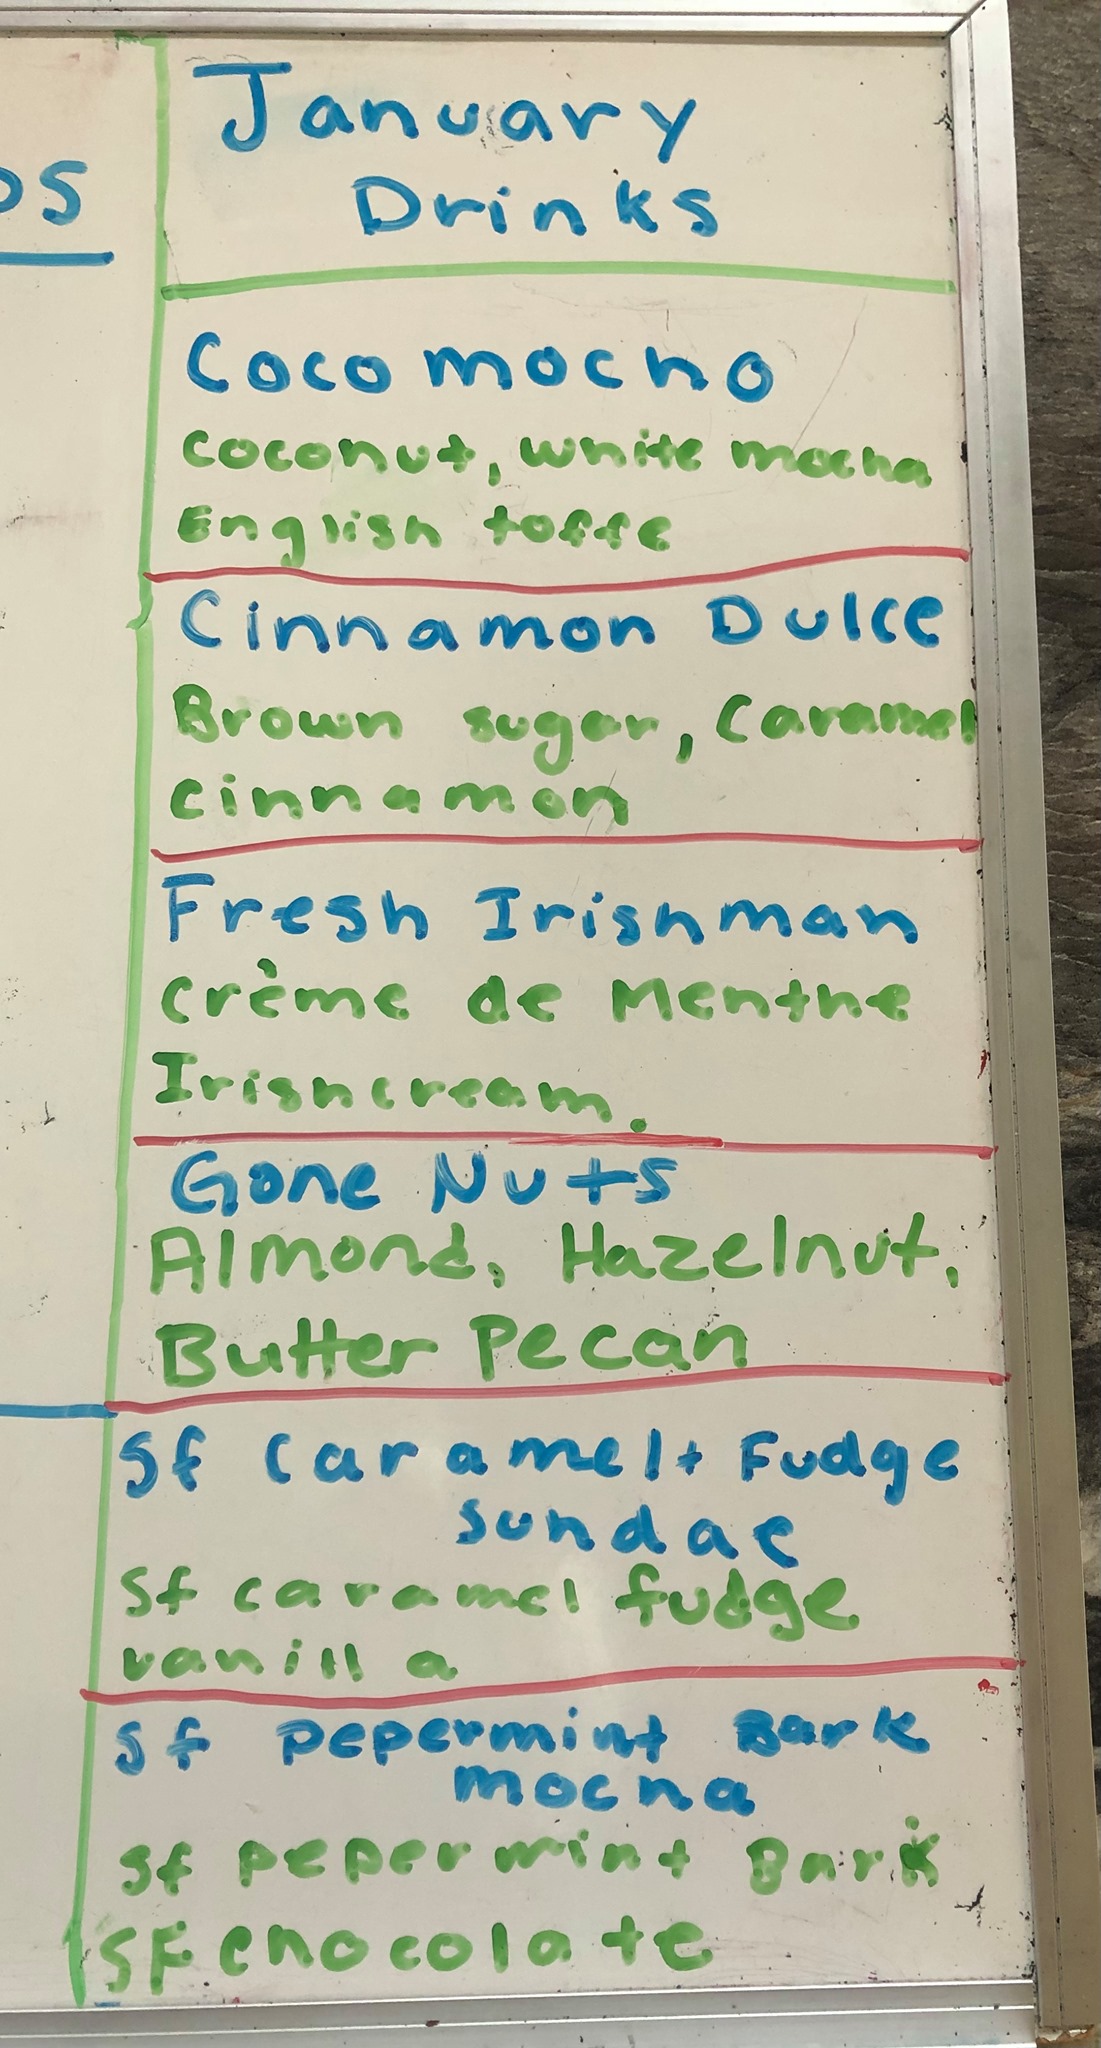 January
Drinks
Coco mocho
coconut, white mocha
English toffe
Cinnamon Dulce
Brown sugar, Caramel
cinnamon
Fresh Irishman
crème de Menthe
Irishcream.
Gone Nuts
Almond, Hazelnut,
Butter Pecan
Sf caramel + Fudge
sundae
Sf caramel fudge
vanilla
Sf pepermint Bark
mocha
Sf pepermint Bark
SF chocolate